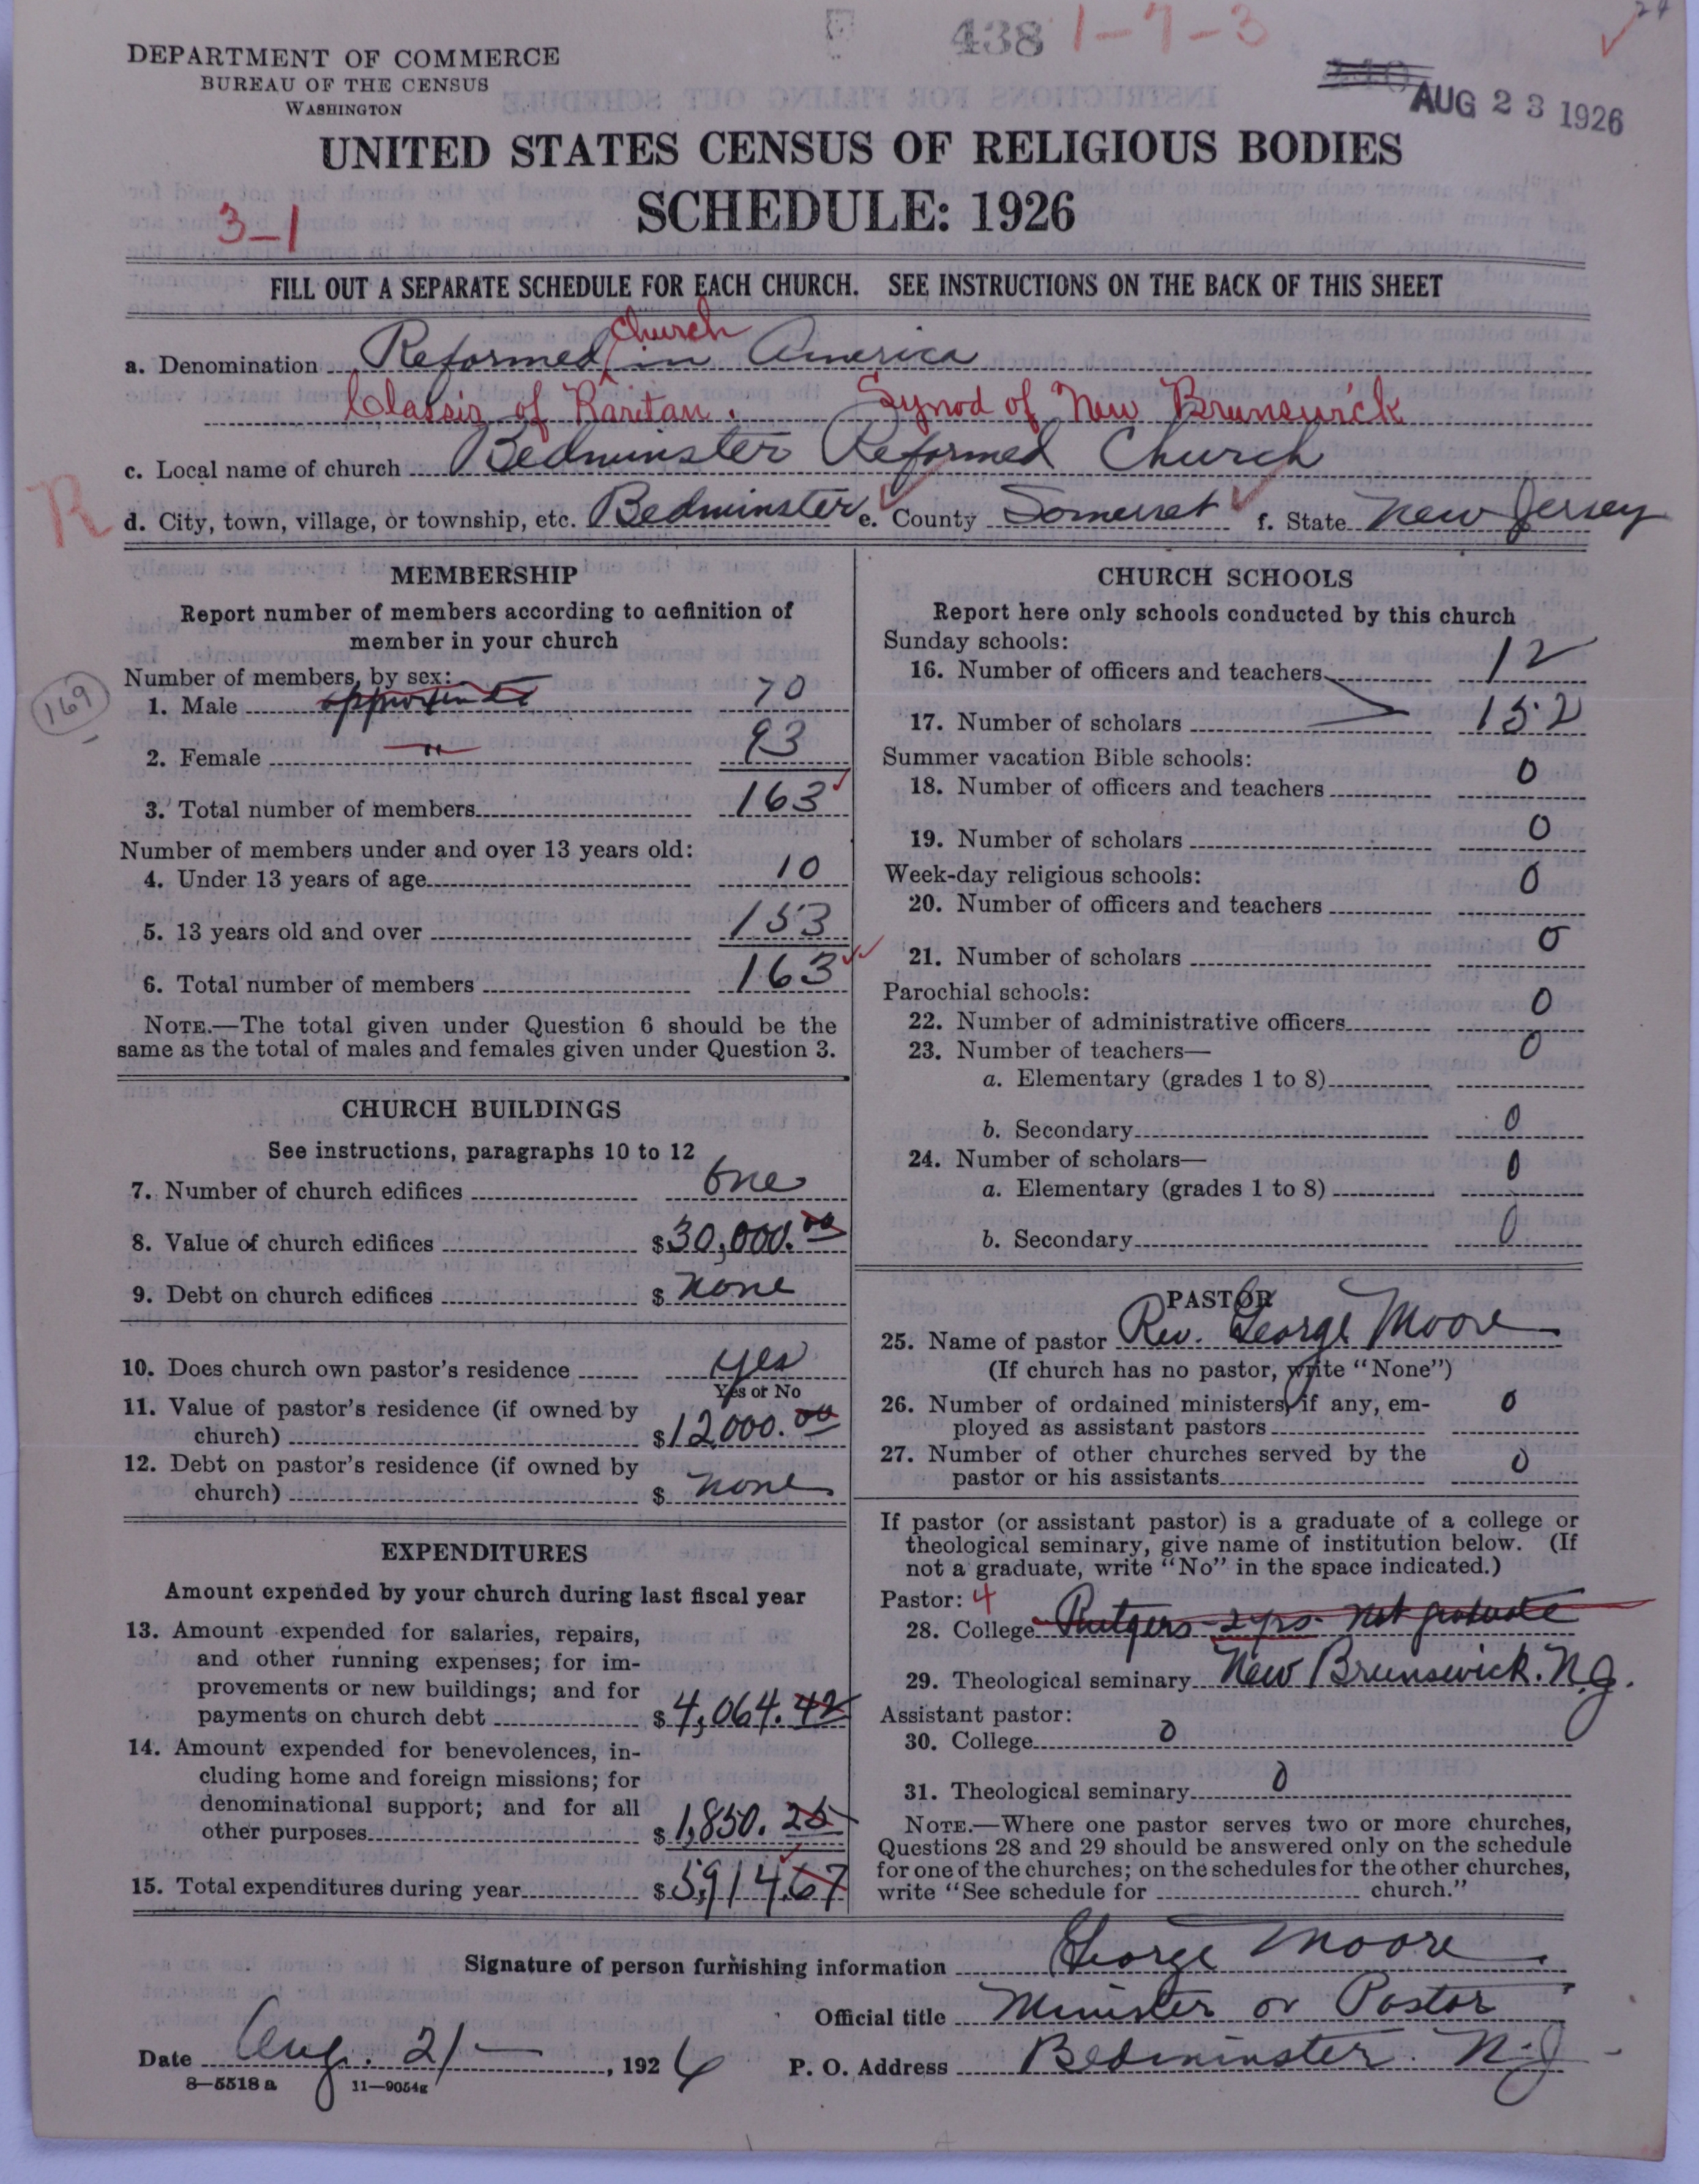 438 1-7-3
24
DEPARTMENT OF COMMERCE
BUREAU OF THE CENSUS
WASHINGTON
AUG 23 1926
UNITED STATES CENSUS OF RELIGIOUS BODIES
SCHEDULE: 1926
3-1
FILL OUT A SEPARATE SCHEDULE FOR EACH CHURCH. SEE INSTRUCTIONS ON THE BACK OF THIS SHEET
a. Denomination Reformed Church in America
Classis of Raritan. Synod of New Brunswick
c. Local name of church Bedminster Reformed Church
R
d. City, town, village, or township, etc. Bedminster e. County Somerset f. State New Jersey
MEMBERSHIP
Report number of members according to definition of
member in your church
Number of members, by sex:
169
1. Male 70
2. Female " 93
3. Total number of members 163
Number of members under and over 13 years old:
4. Under 13 years of age 10
5. 13 years old and over 153
6. Total number of members 163
NOTE.—The total given under Question 6 should be the
same as the total of males and females given under Question 3.
CHURCH BUILDINGS
See instructions, paragraphs 10 to 12
7. Number of church edifices One
8. Value of church edifices $30,000.00
9. Debt on church edifices $ None
10. Does church own pastor's residence yes
Yes or No
11. Value of pastor's residence (if owned by
church) $12,000.00
12. Debt on pastor's residence (if owned by
church) $ None
EXPENDITURES
Amount expended by your church during last fiscal year
13. Amount expended for salaries, repairs,
and other running expenses; for im-
provements or new buildings; and for
payments on church debt $4,064.42
14. Amount expended for benevolences, in-
cluding home and foreign missions; for
denominational support; and for all
other purposes $1,850.25
15. Total expenditures during year $5,914.67
CHURCH SCHOOLS
Report here only schools conducted by this church
Sunday schools:
16. Number of officers and teachers 12
17. Number of scholars 152
Summer vacation Bible schools:
18. Number of officers and teachers 0
19. Number of scholars 0
Week-day religious schools:
20. Number of officers and teachers 0
21. Number of scholars 0
Parochial schools:
22. Number of administrative officers 0
23. Number of teachers— 0
a. Elementary (grades 1 to 8)
b. Secondary 0
24. Number of scholars— 0
a. Elementary (grades 1 to 8)
b. Secondary 0
PASTOR
25. Name of pastor Rev. George Moore
(If church has no pastor, write "None")
26. Number of ordained ministers, if any, em- 0
ployed as assistant pastors
27. Number of other churches served by the
pastor or his assistants 0
If pastor (or assistant pastor) is a graduate of a college or
theological seminary, give name of institution below. (If
not a graduate, write "No" in the space indicated.)
Pastor: 4
28. College Rutgers - 2 yrs. Not graduate
29. Theological seminary New Brunswick. N.J.
Assistant pastor:
30. College 0
31. Theological seminary 0
NOTE.—Where one pastor serves two or more churches,
Questions 28 and 29 should be answered only on the schedule
for one of the churches; on the schedules for the other churches,
write "See schedule for church."
Signature of person furnishing information George Moore
Official title Minister or Pastor
Date Aug. 21 —, 1926 P. O. Address Bedminster. N.J.
8—5518 a 11—9054g